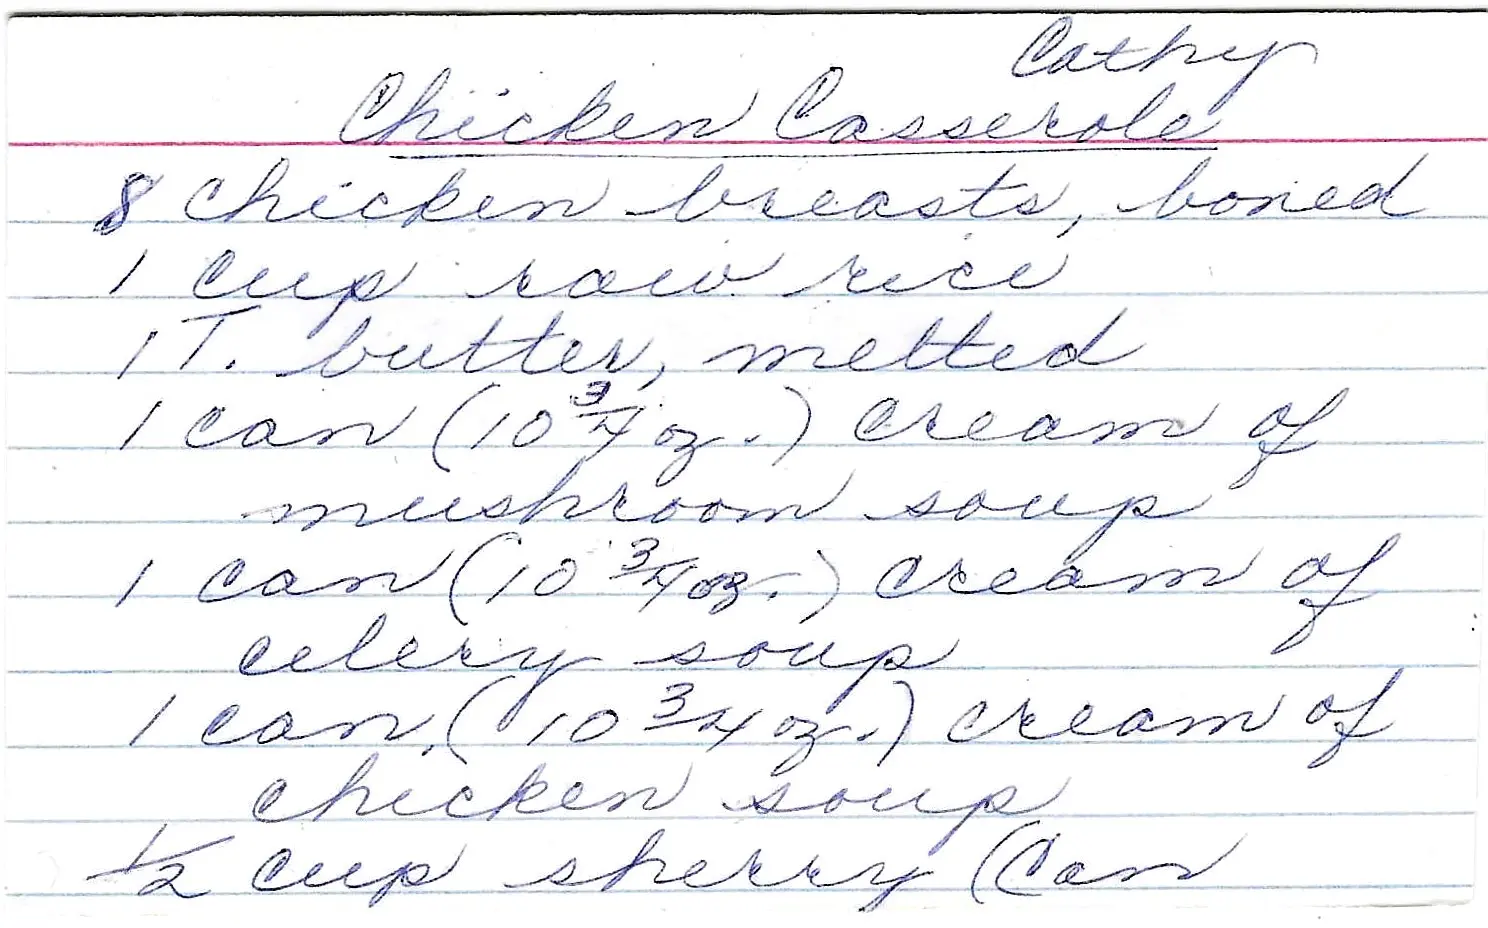 Cathy
Chicken Casserole
8 chicken breasts, boned
1 cup raw rice
1 T. butter, melted
1 can (10 3/4 oz.) cream of
mushroom soup
1 can (10 3/4 oz.) cream of
celery soup
1 can (10 3/4 oz.) cream of
chicken soup
1/2 cup sherry (Can